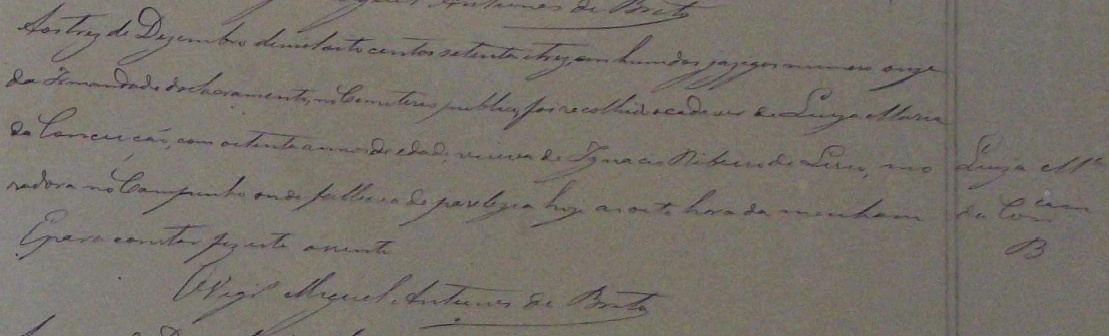 Miguel Antunes de Brito
Aos trez de Dezembro de mil oito centos setenta e trez, em hum dos jazigos numero onze
da Irmandade do Sacramento, no Cemiterio publico, foi recolhido o cadaver de Luiza Maria
da Conceição, com oitenta annos de edade, viuva de Ignacio Ribeiro de Lira, mo
radora no Campinho onde falleceo de paralezia hoje as oito hora da manham
E para constar fiz este assento
O Vigr.º Miguel Antunes de Brito
Luiza Mª
da Con cam
B